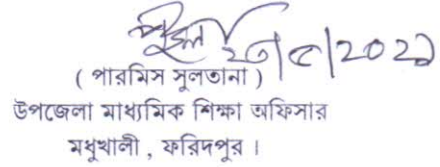 ২৩/৫/2021
( পারমিস সুলতানা )
উপজেলা মাধ্যমিক শিক্ষা অফিসার
মধুখালী , ফরিদপুর ।